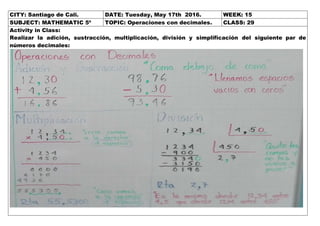 CITY: Santiago de Cali.
DATE: Tuesday, May 17th 2016.
WEEK: 15
SUBJECT: MATHEMATIC 5º
TOPIC: Operaciones con decimales.
CLASS: 29
Activity in Class:
Realizar la adición, sustracción, multiplicación, división y simplificación del siguiente par de
números decimales:
Operaciones con Decimales
Adición y Sustracción "Coma debajo de coma"
12,30
+ 4,56
16,86
98,76
- 5,30
93,46
"Llenamos espacios
vacíos con ceros"
Multiplicación
12,34
× 4,50
1234
× 450
0000
6170
4936
555300
Rta 55,5300
División
12,34 4,50
1234 450
- 900 2,7
3340
- 3150
0190
Rta 2,7
"Quito las
comas y
"Es lo mismo dividir 12,34 entre
4,5 que dividir 1234 entre 450"